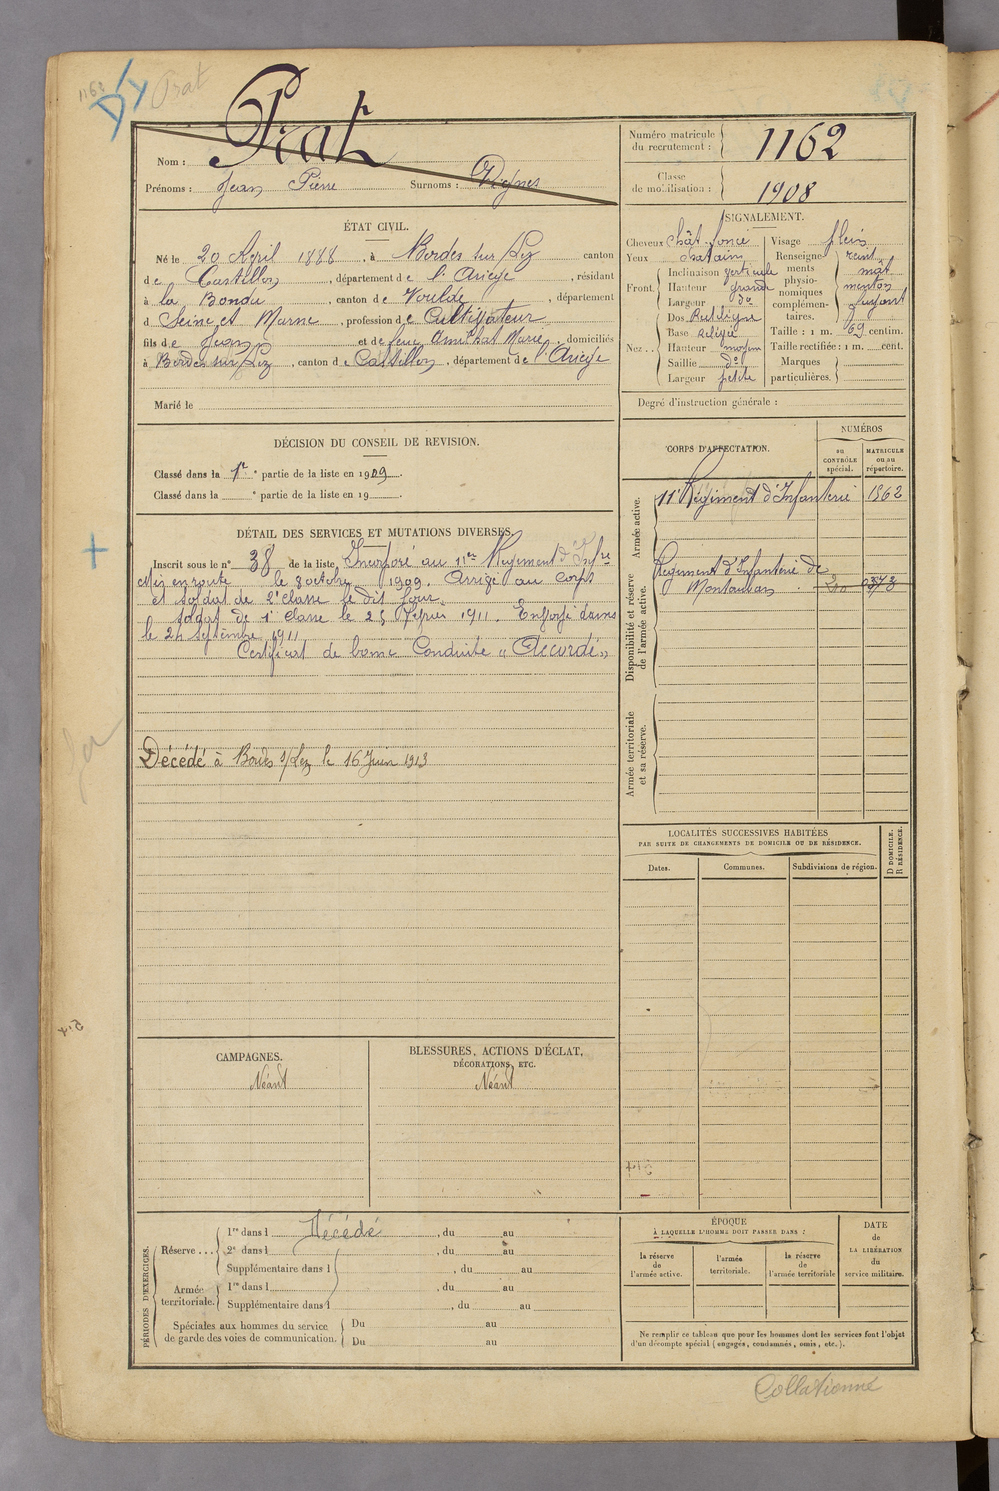 1163
Dy Prat
Nom : Prat
Prénoms : Jean Pierre Surnoms : Vignes
Numéro matricule
du recrutement : 1162
Classe
de mobilisation : 1908
ÉTAT CIVIL.
Né le 20 Avril 1888, à Bordes sur Lez canton
de Castillon, département de l'Ariège, résidant
à la Bondu, canton de Voulde, département
d Seine et Marne, profession de Cultivateur
fils de Jean et de feue Amilhat Marie, domiciliés
à Bordes sur Lez, canton de Castillon, département de l'Ariège
Marié le
SIGNALEMENT.
Cheveux chât. foncé
Yeux chatain
Front. Inclinaison verticale
Hauteur grande
Largeur do
Nez.. Dos Rectiligne
Base Relevée
Hauteur moyen
Saillie do
Largeur petite
Visage plein
Renseignements physionomiques complémentaires. teint mât menton fuyant
Taille : 1 m. 69 centim.
Taille rectifiée : 1 m. cent.
Marques
particulières.
Degré d'instruction générale :
DÉCISION DU CONSEIL DE REVISION.
Classé dans la 1re partie de la liste en 1909.
Classé dans la e partie de la liste en 19
DÉTAIL DES SERVICES ET MUTATIONS DIVERSES.
Inscrit sous le n° 38 de la liste Incorporé au 11e Régiment d'Infrie
Mis en route le 8 octobre 1909. Arrivé au corps
et soldat de 2e classe le dit jour.
Soldat de 1e classe le 25 février 1911. En
le 24 septembre 1911
Certificat de bonne Conduite "Accordé"
Décédé à Bordes s/Lez le 16 Juin 1913
CORPS D'AFFECTATION.
NUMÉROS
au
CONTRÔLE
spécial.
MATRICULE
ou au
répertoire.
Armée active.
11e Régiment d'Infanterie 1862
Disponibilité et réserve
de l'armée active.
Régiment d'Infanterie de
Montauban
Armée territoriale
et sa réserve.
LOCALITÉS SUCCESSIVES HABITÉES
PAR SUITE DE CHANGEMENTS DE DOMICILE OU DE RÉSIDENCE.
D DOMICILE.
R RÉSIDENCE.
Dates.
Communes.
Subdivisions de région.
CAMPAGNES.
Néant
BLESSURES, ACTIONS D'ÉCLAT,
DÉCORATIONS, ETC.
Néant
PÉRIODES D'EXERCICES.
Réserve ... 1re dans l Décédé, du au
2e dans l, du au
Supplémentaire dans l, du au
Armée
territoriale. 1re dans l, du au
Supplémentaire dans l, du au
Spéciales aux hommes du service
de garde des voies de communication. Du au
Du au
ÉPOQUE
À LAQUELLE L'HOMME DOIT PASSER DANS :
la réserve
de
l'armée active.
l'armée
territoriale.
la réserve
de
l'armée territoriale
DATE
de
LA LIBÉRATION
du
service militaire.
Ne remplir ce tableau que pour les hommes dont les services font l'objet
d'un décompte spécial (engagés, condamnés, omis, etc.).
Collationné